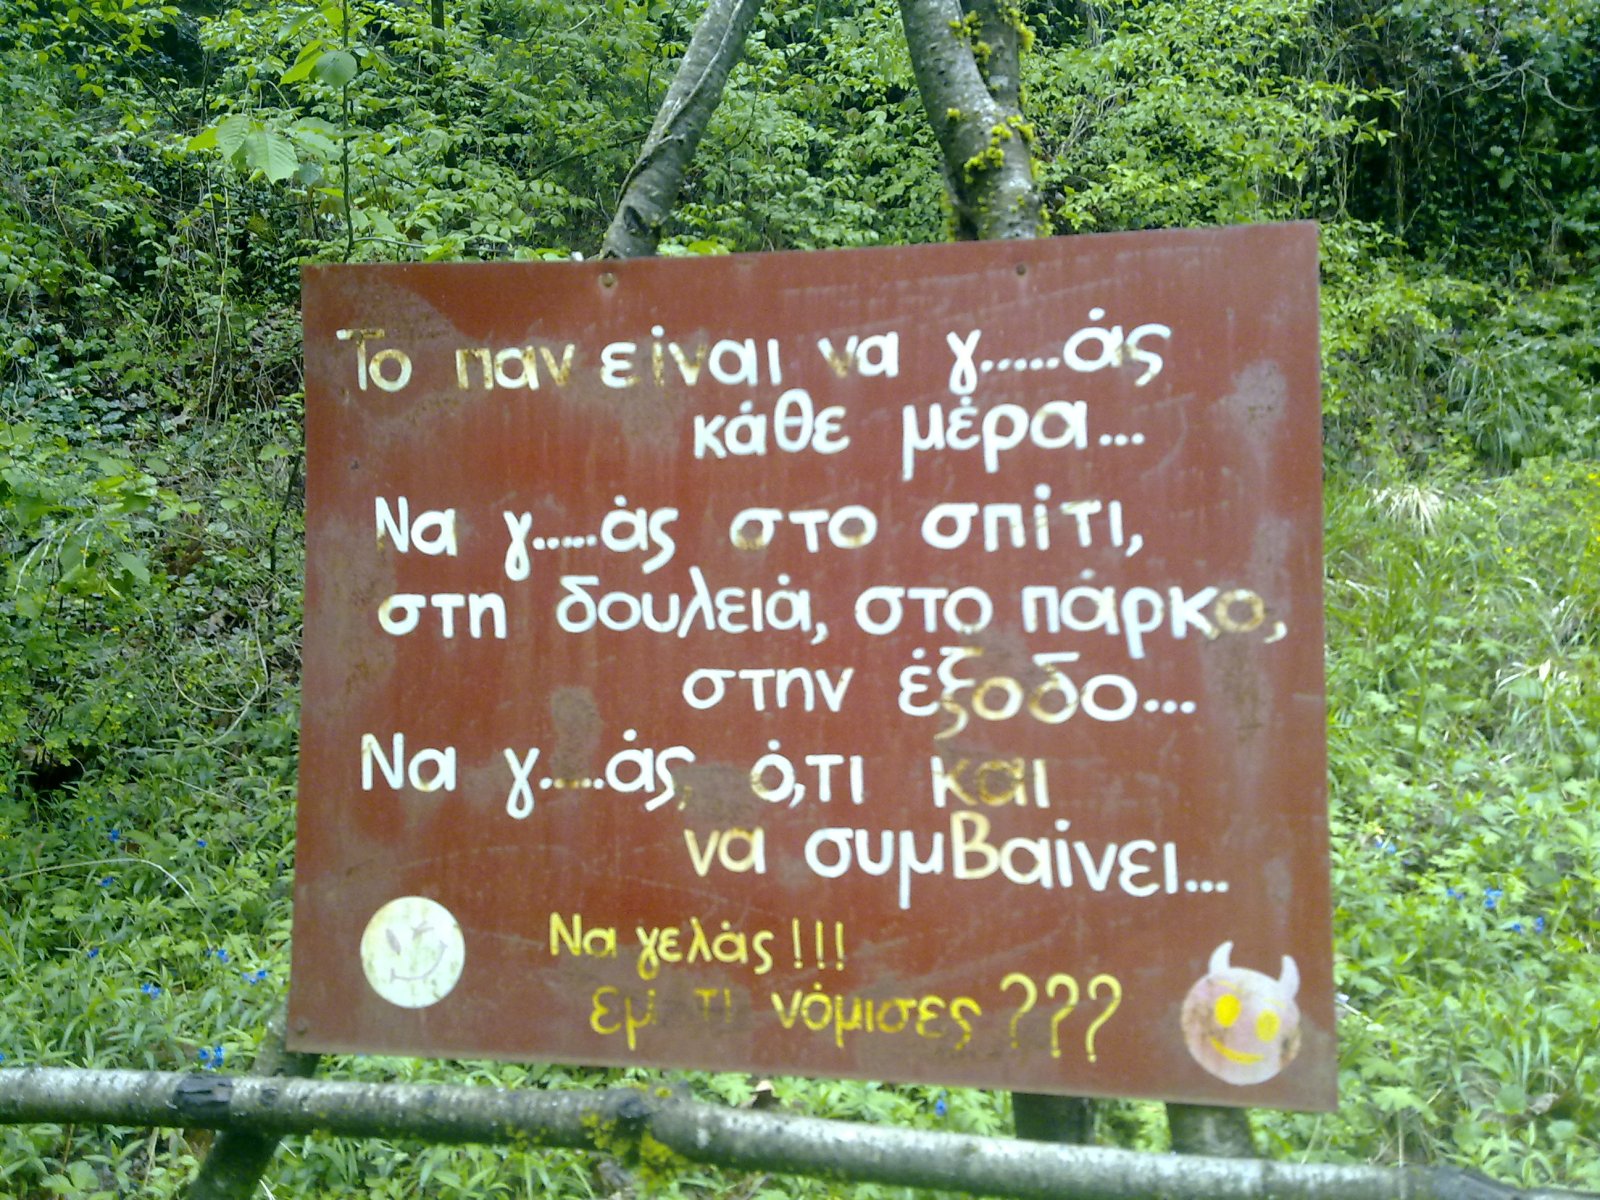 Το παν είναι να γ.....άς
κάθε μέρα...
Να γ.....άς στο σπίτι,
στη δουλειά, στο πάρκο,
στην έξοδο...
Να γ.....άς, ό,τι και
να συμβαίνει...
Να γελάς!!!
εμ τι νόμισες???